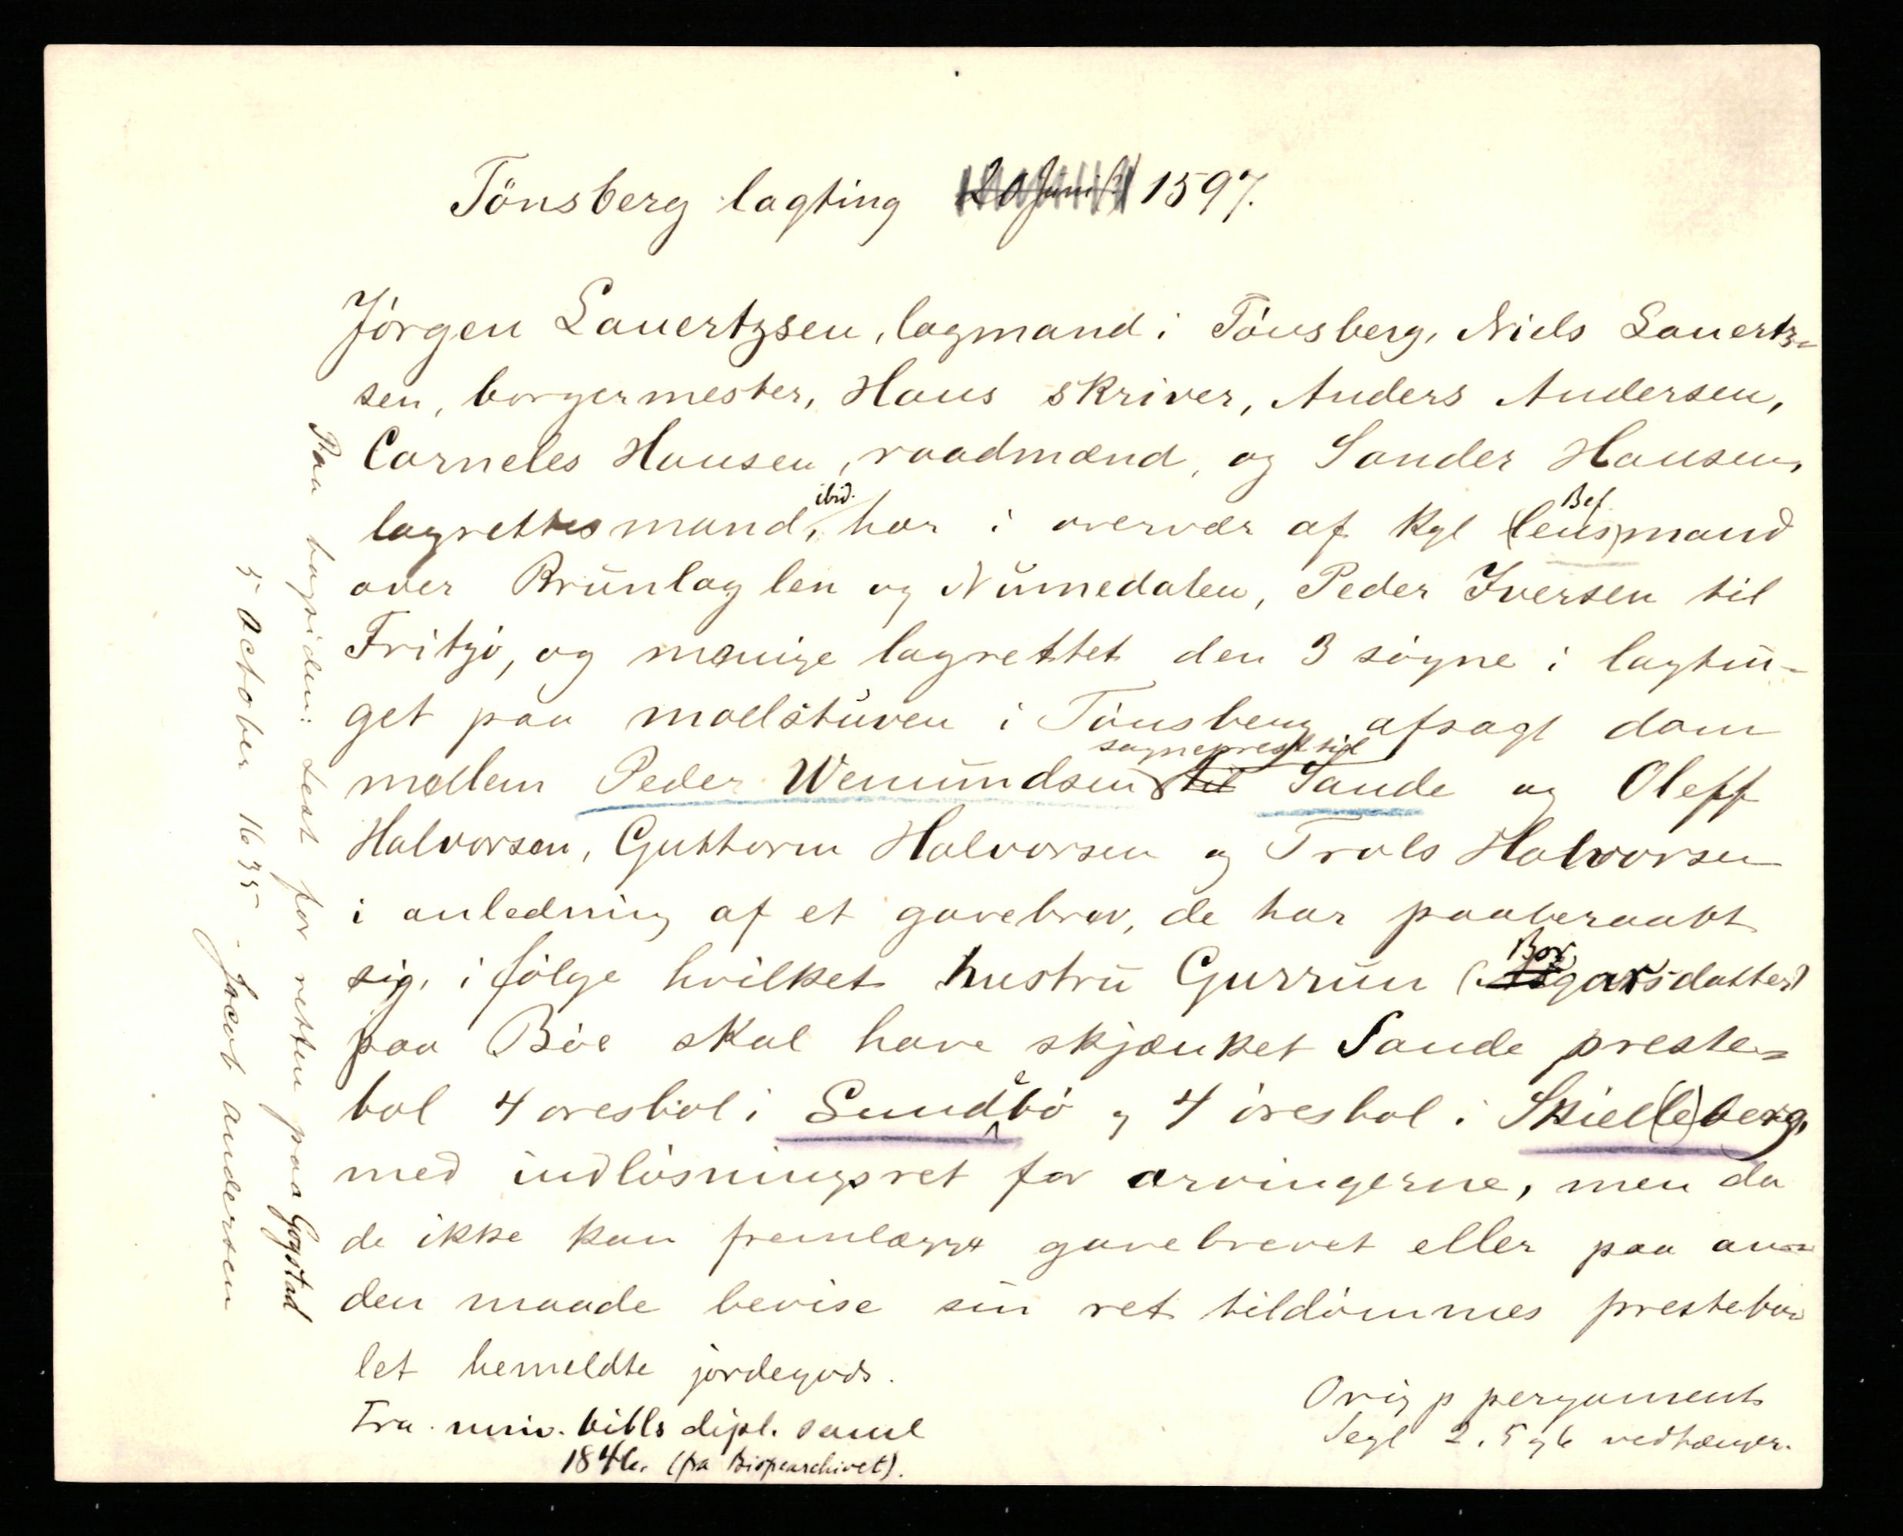 Tönsberg lagting 20 Juni 1597.
Jörgen Lauertzsen, lagmand i Tönsberg, Niels Lauertz-
sen, borgermester, Hans skriver, Anders Andersen,
Corneles Hansen, raadmænd, og Sander Hansen,
lagrettesmand, ibid. har i overvær af kgl (lens)mand Bef.
over Brunlag len og Numedalen, Peder Iversen til
Fritzö, og menige lagrettet den 3 sögne i lagtin-
get paa modstuven i Tönsberg afsagt dom
mellem Peder Wemundsen sogneprest til til Sande og Oleff
Halvorsen, Guttorm Halvorsen og Trols Halvorsen
i anledning af et gavebrev, de har paaberaabt
sig, i fölge hvilket hustru Gurrun (Borgarsdatter)
paa Böe skal have skjænket Sande preste-
bol 4 öresbol i Sundbö og 4 öresbol i Skiel(le)berg,
med indlösningsret for arvingerne, men da
de ikke kan fremlægge gavebrevet eller paa an-
den maade bevise sin ret tildömmes prestebo-
let bemeldte jordegods.
Fra univ. bibls dipl. saml
1846. (fra Bispearchivet).
Orig p pergament
Segl 2, 5 og 6 vedhænger.
Paa bagsiden: Lest for retten paa Gogstad
5 October 1635. Jacob Andersen